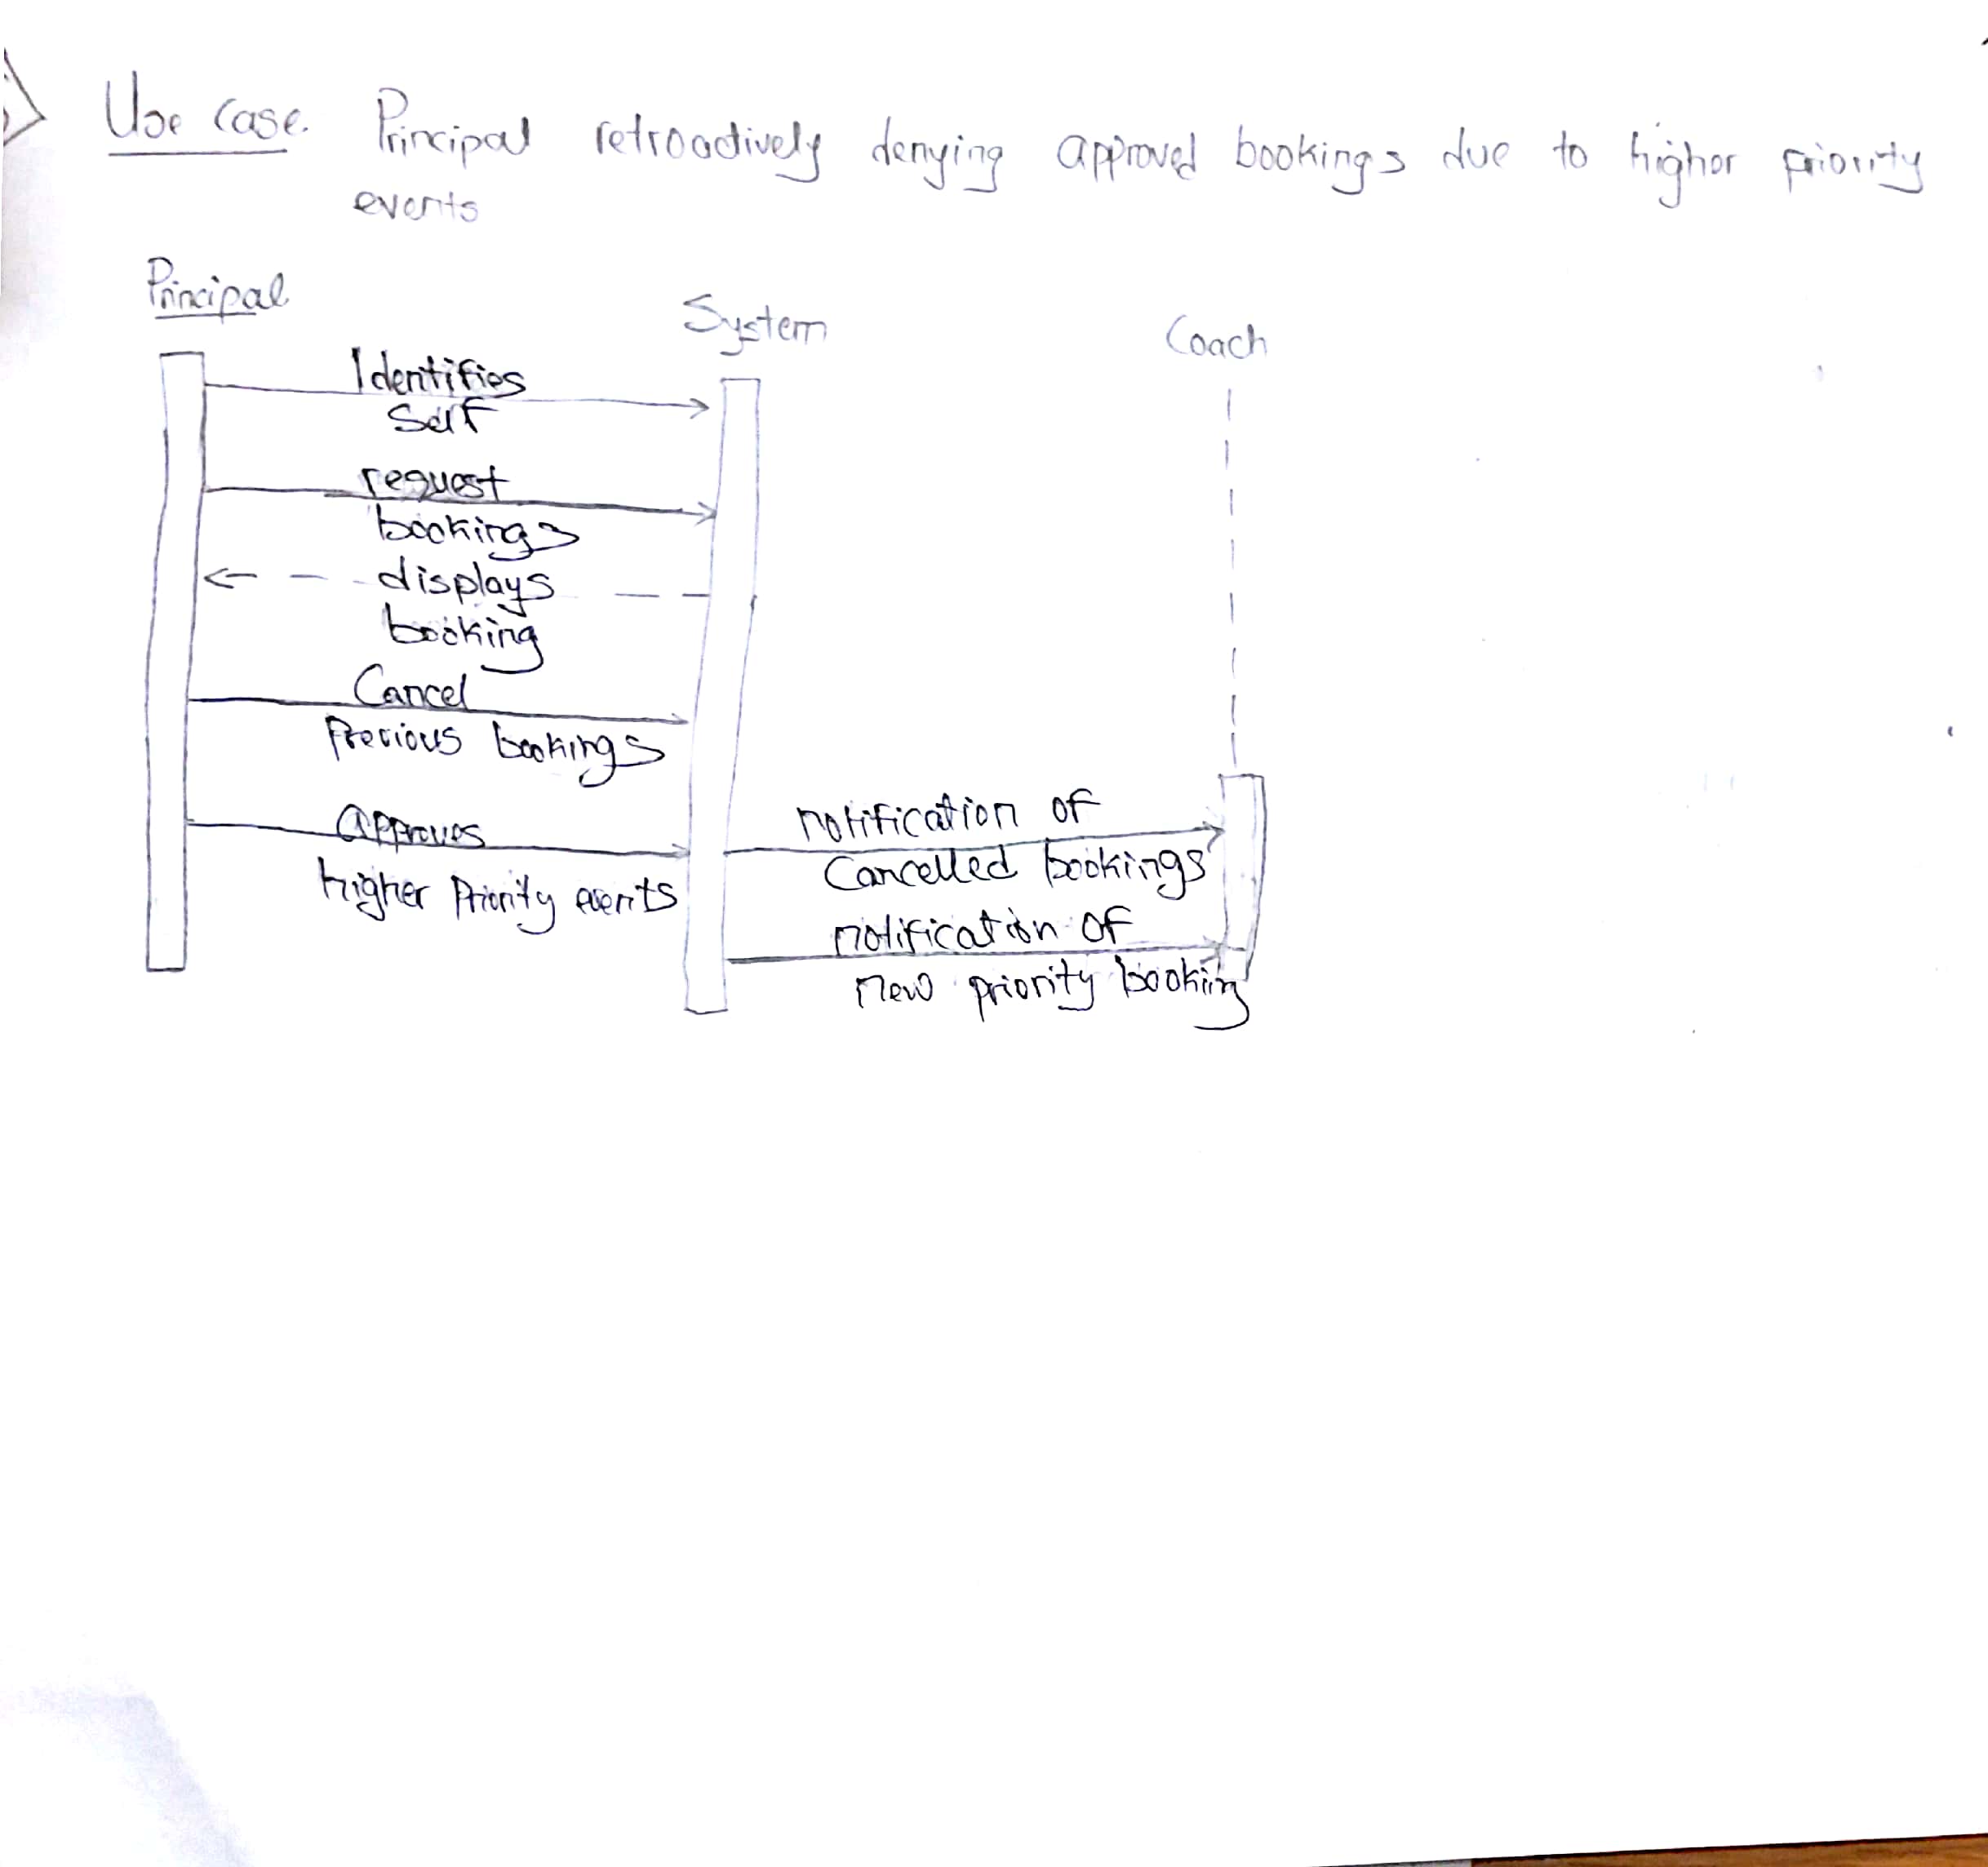 Use Case. Principal retroactively denying approved bookings due to higher priority
events
Principal
System
Coach
Identifies
Self
request
bookings
displays
booking
Cancel
Previous bookings
Approves
higher Priority events
notification of
Cancelled bookings
notification of
new priority booking